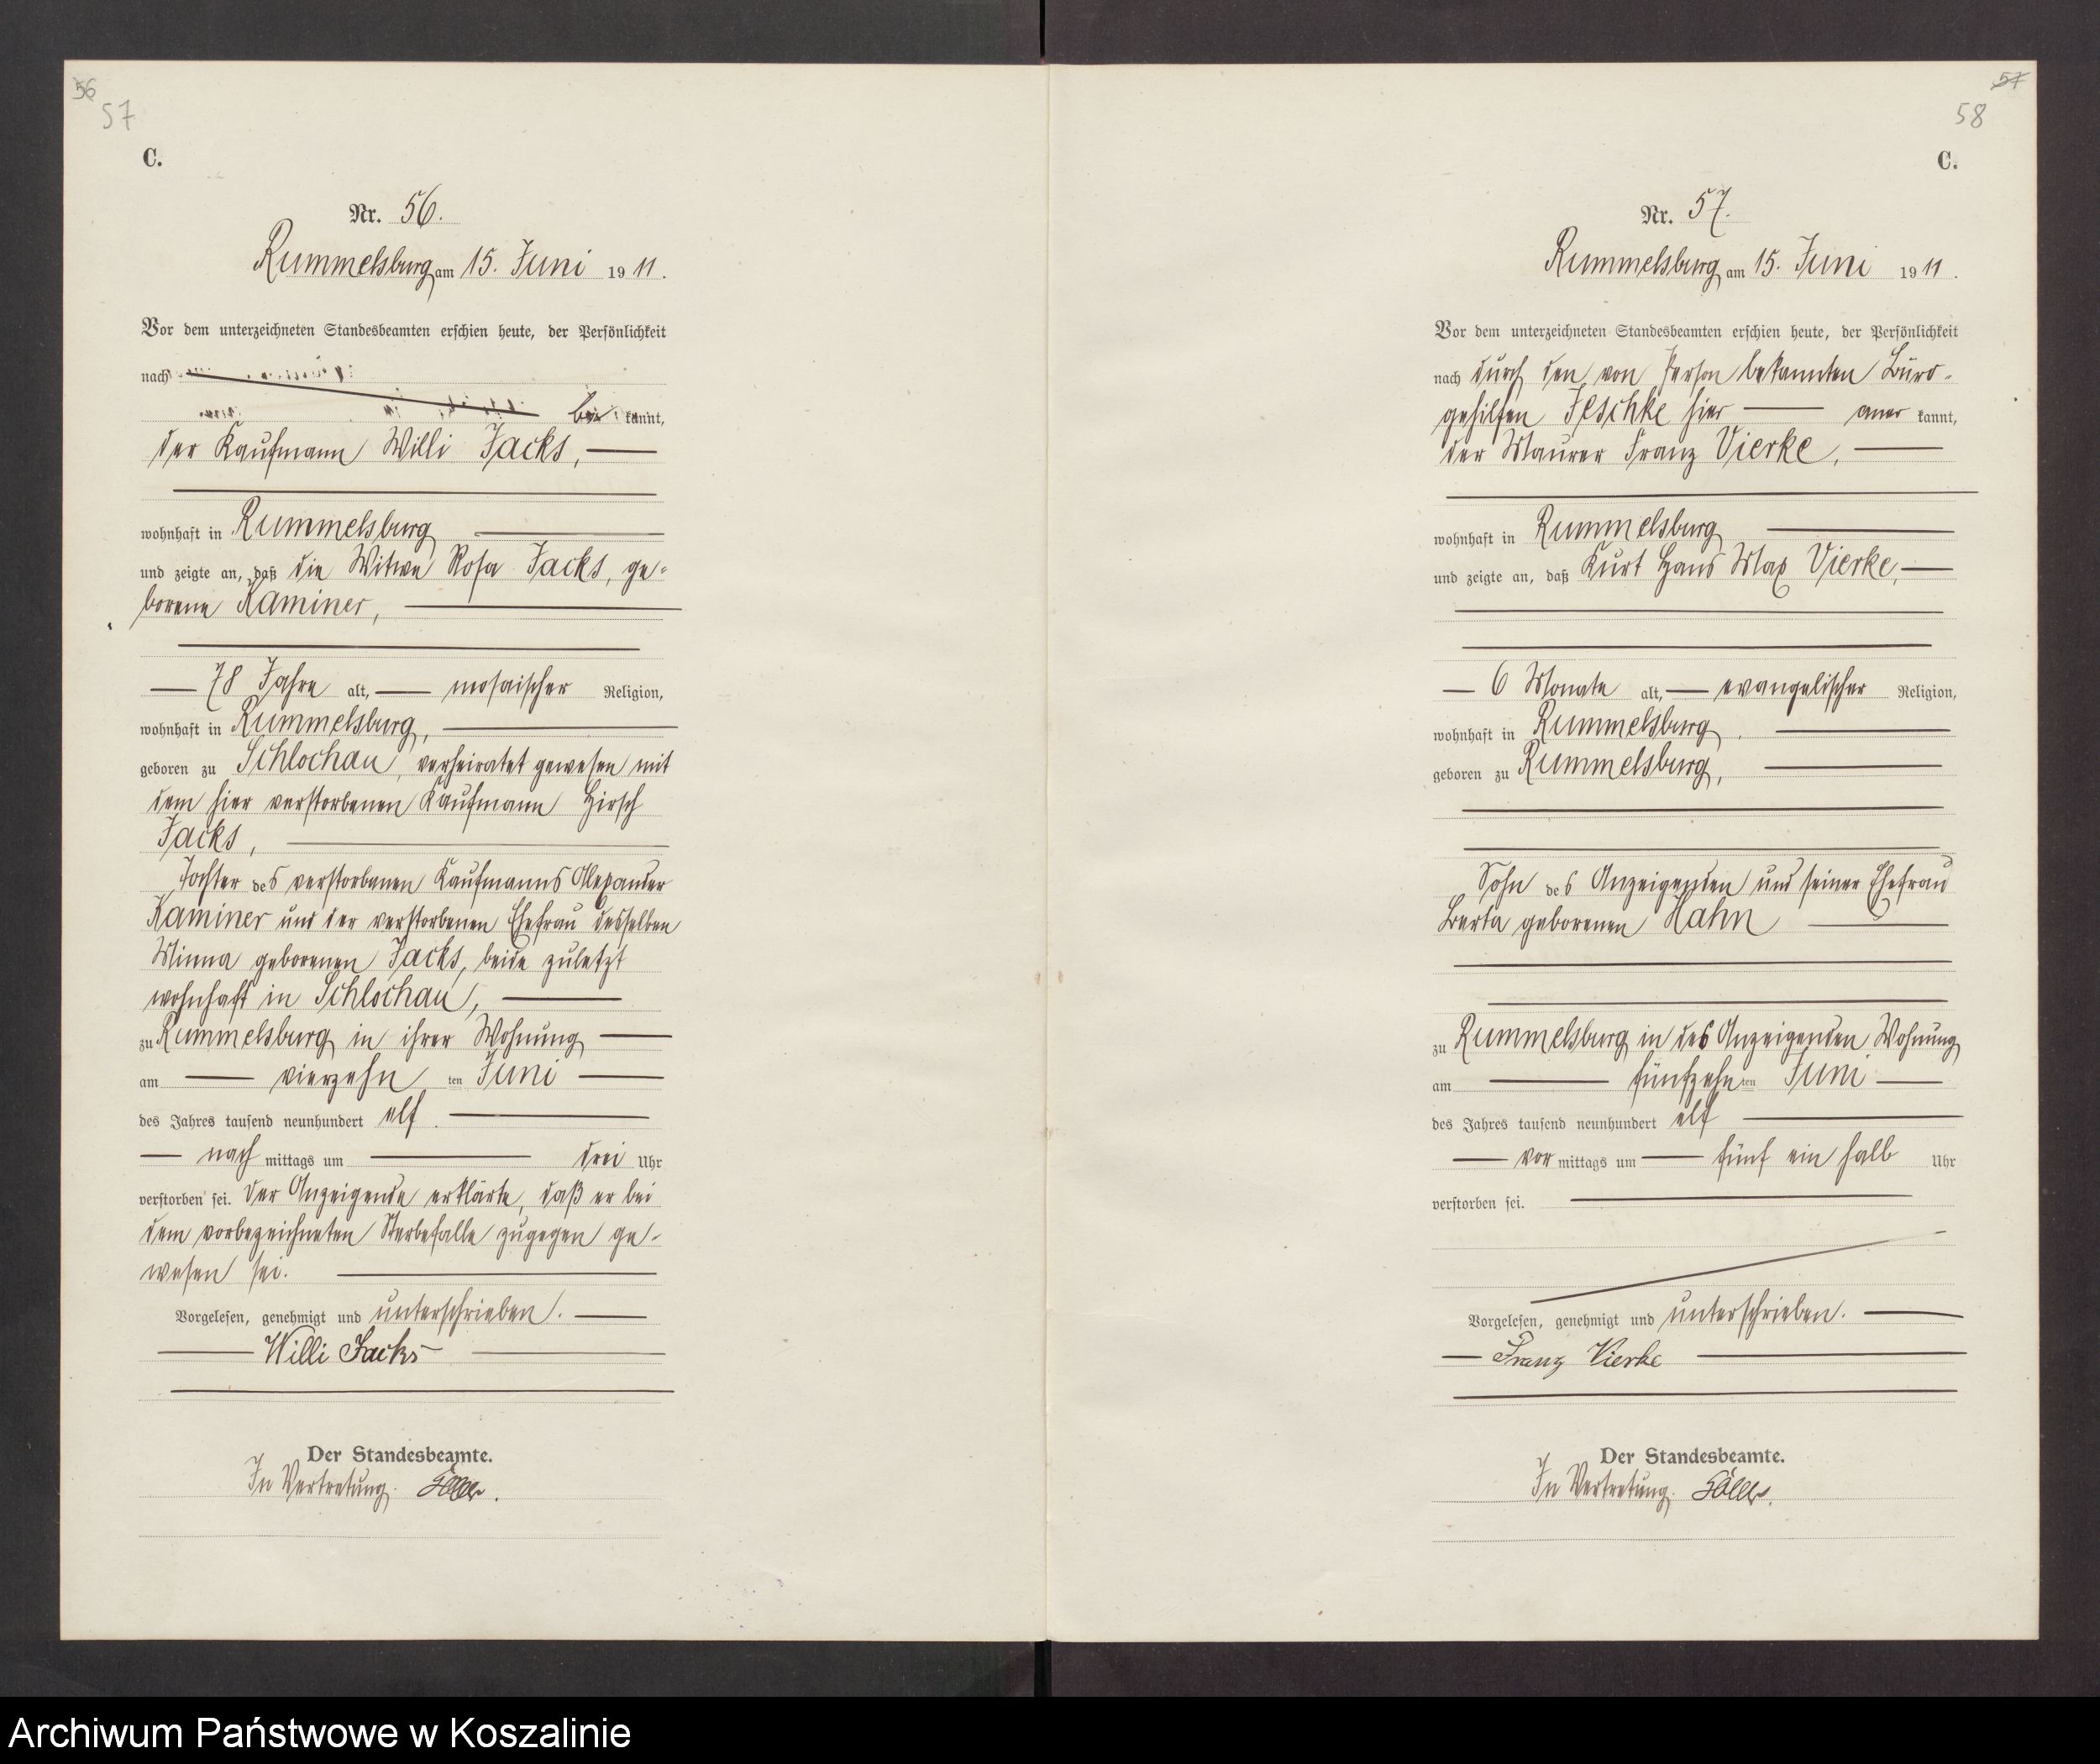 56
57
C.
Nr. 56.
Rummelsburg am 15. Juni 1911.
Vor dem unterzeichneten Standesbeamten erschien heute, der Persönlichkeit
nach
be kannt,
der Kaufmann Willi Jacks,
wohnhaft in Rummelsburg
und zeigte an, daß die Witwe Rosa Jacks, ge-
borene Kaminer,
78 Jahre alt, mosaischer Religion,
wohnhaft in Rummelsburg,
geboren zu Schlochau, verheiratet gewesen mit
dem hier verstorbenen Kaufmann Hirsch
Jacks,
Tochter des verstorbenen Kaufmanns Alexander
Kaminer und der verstorbenen Ehefrau desselben
Minna geborenen Jacks, beide zuletzt
wohnhaft in Schlochau,
zu Rummelsburg in ihrer Wohnung
am vierzehn ten Juni
des Jahres tausend neunhundert elf
nach mittags um drei Uhr
verstorben sei. Der Anzeigende erklärte, daß er bei
dem vorbezeichneten Sterbefalle zugegen ge-
wesen sei.
Vorgelesen, genehmigt und unterschrieben.
Willi Jacks
Der Standesbeamte.
In Vertretung.
57
58
C.
Nr. 57.
Rummelsburg am 15. Juni 1911.
Vor dem unterzeichneten Standesbeamten erschien heute, der Persönlichkeit
nach durch den von Person bekannten Büro-
gehilfen Jeschke hier aner kannt,
der Maurer Franz Vierke,
wohnhaft in Rummelsburg
und zeigte an, daß Kurt Hans Max Vierke,
6 Monate alt, evangelischer Religion,
wohnhaft in Rummelsburg,
geboren zu Rummelsburg,
Sohn des Anzeigenden und seiner Ehefrau
Berta geborenen Hahn
zu Rummelsburg in des Anzeigenden Wohnung
am fünfzehn ten Juni
des Jahres tausend neunhundert elf
vor mittags um fünf ein halb Uhr
verstorben sei.
Vorgelesen, genehmigt und unterschrieben.
Franz Vierke
Der Standesbeamte.
In Vertretung.
Archiwum Państwowe w Koszalinie